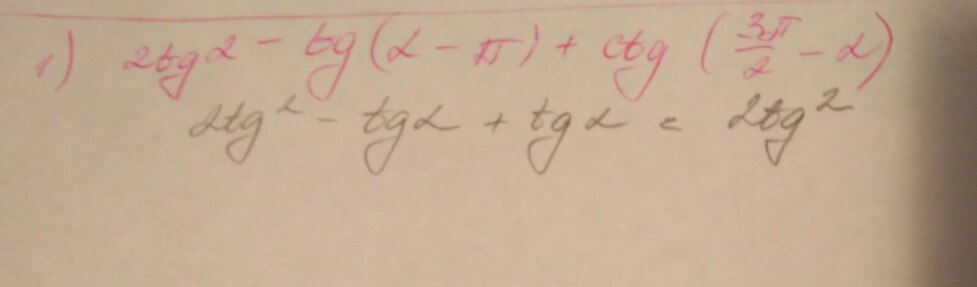 1) 2tg α - tg (α - π) + ctg (3π/2 - α)
2tg α - tg α + tg α = 2tg α